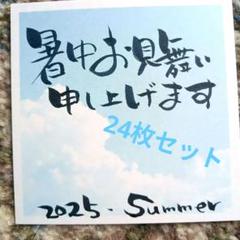 暑中お見舞い
申し上げます
24枚セット
2025. Summer